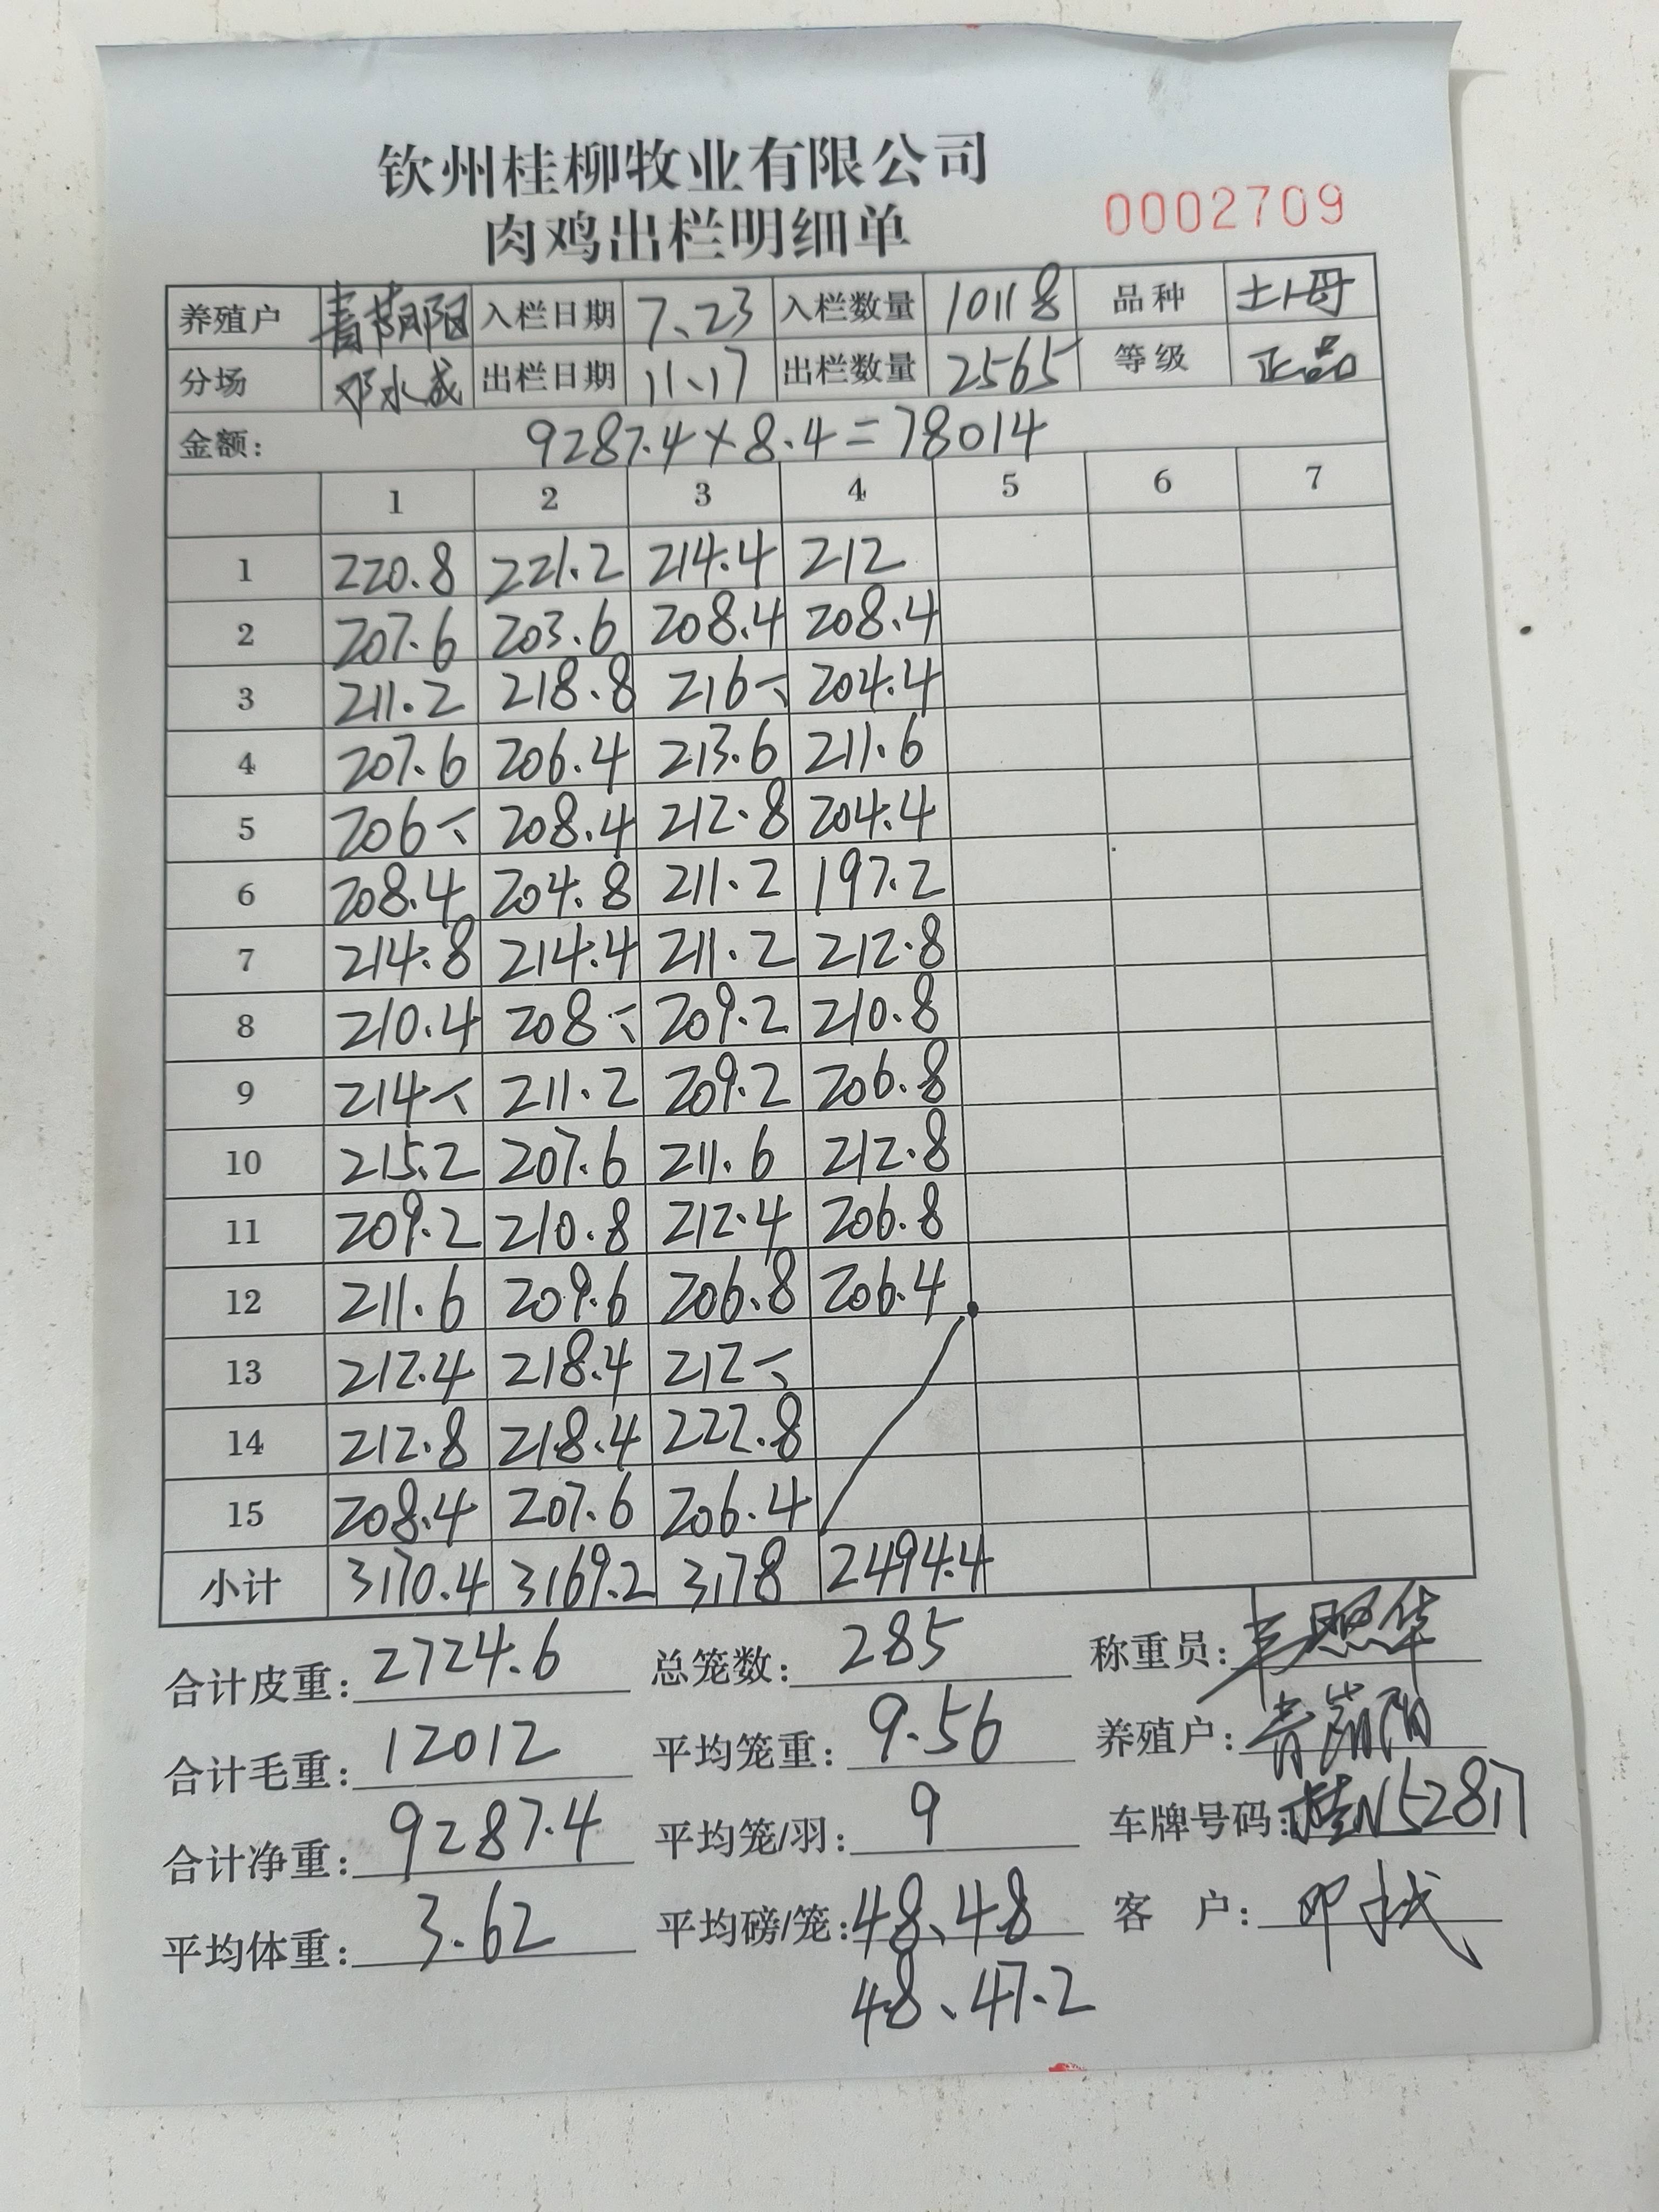 钦州桂柳牧业有限公司
肉鸡出栏明细单 0002709
养殖户 入栏日期 7、23 入栏数量 10118 品种 土1母
分场 邓水成 出栏日期 11、17 出栏数量 2565 等级 正品
金额: 9287.4×8.4=78014
1 2 3 4 5 6 7
1 220.8 221.2 214.4 212
2 207.6 203.6 208.4 208.4
3 211.2 218.8 216 204.4
4 207.6 206.4 213.6 211.6
5 206 208.4 212.8 204.4
6 208.4 204.8 211.2 197.2
7 214.8 214.4 211.2 212.8
8 210.4 208 209.2 210.8
9 214 211.2 209.2 206.8
10 215.2 207.6 211.6 212.8
11 209.2 210.8 212.4 206.8
12 211.6 209.6 206.8 206.4
13 212.4 218.4 212
14 212.8 218.4 222.8
15 208.4 207.6 206.4
小计 3170.4 3169.2 3178 2494.4
合计皮重: 2724.6 总笼数: 285 称重员:
合计毛重: 12012 平均笼重: 9.56 养殖户:
合计净重: 9287.4 平均笼/羽: 9 车牌号码: 桂N52817
平均体重: 3.62 平均磅/笼: 48、48 客 户:
48、47.2